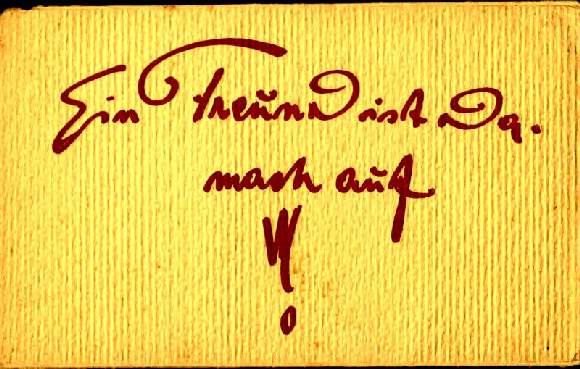 Ein Freund ist da.
mach auf
!